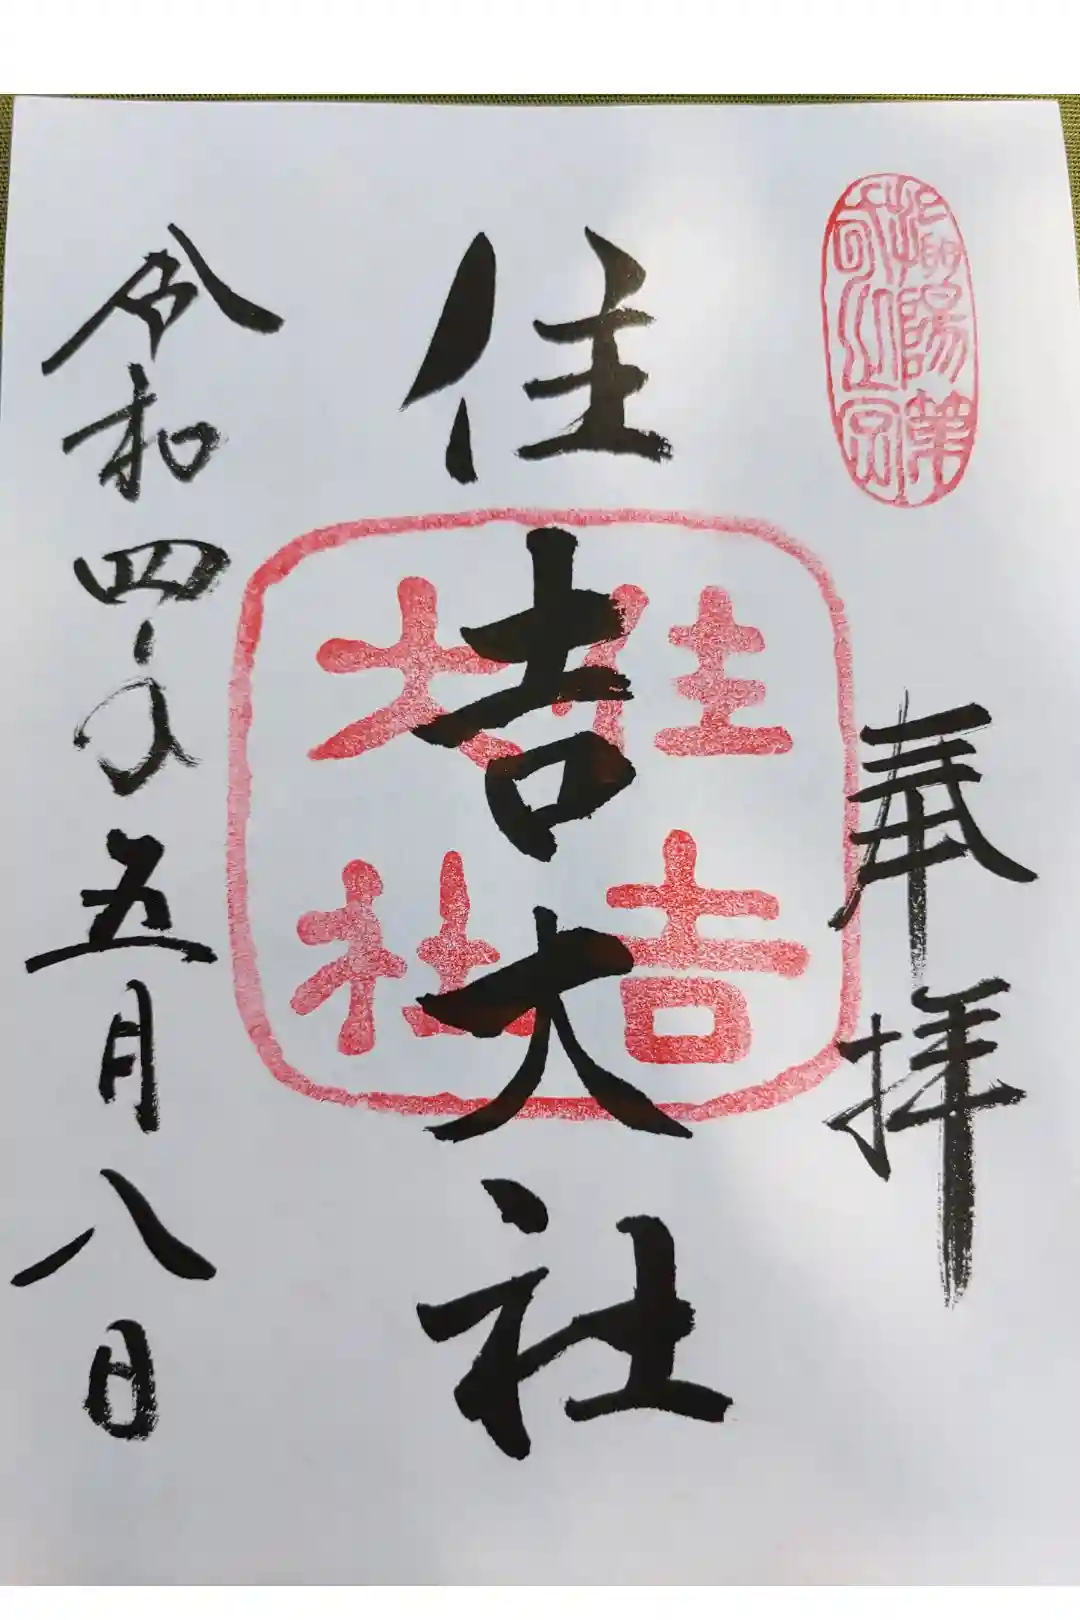 奉拝
住吉大社
住吉
大社
令和四年五月八日